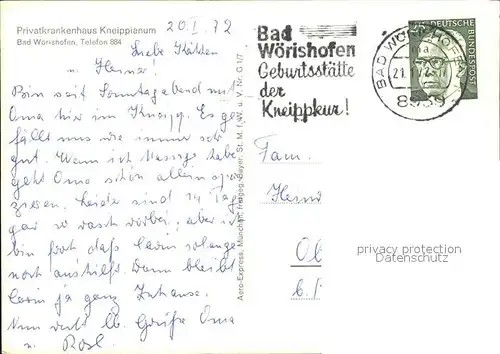 Privatkrankenhaus Kneippianum
Bad Wörishofen, Telefon 884
20.I.72
Liebe Käthen
u. Heinz!
Bin seit Sonntagabend mit
Oma hier im Kneipp. Es ge-
fällt uns wie immer sehr
gut. Wenn ich Massage habe
geht Oma schön allein spa-
zieren. Leider sind 14 Tag
gar so rasch vorbei, aber ich
bin froh daß Karin solange
noch aushilft. Dann bleibt
Karin ja ganz Zuhause.
Nun recht lb. Grüße Oma
u. Rosl.
Aero-Express, München, Freigeg. Bayer. St. M. f. W. u. V. Nr. G 1/7
Bad
Wörishofen
Geburtsstätte
der
Kneippkur!
BAD WÖRISHOFEN
ma
21.1.72-17
8939
DEUTSCHE BUNDESPOST
Fam.
privacy protection
Datenschutz